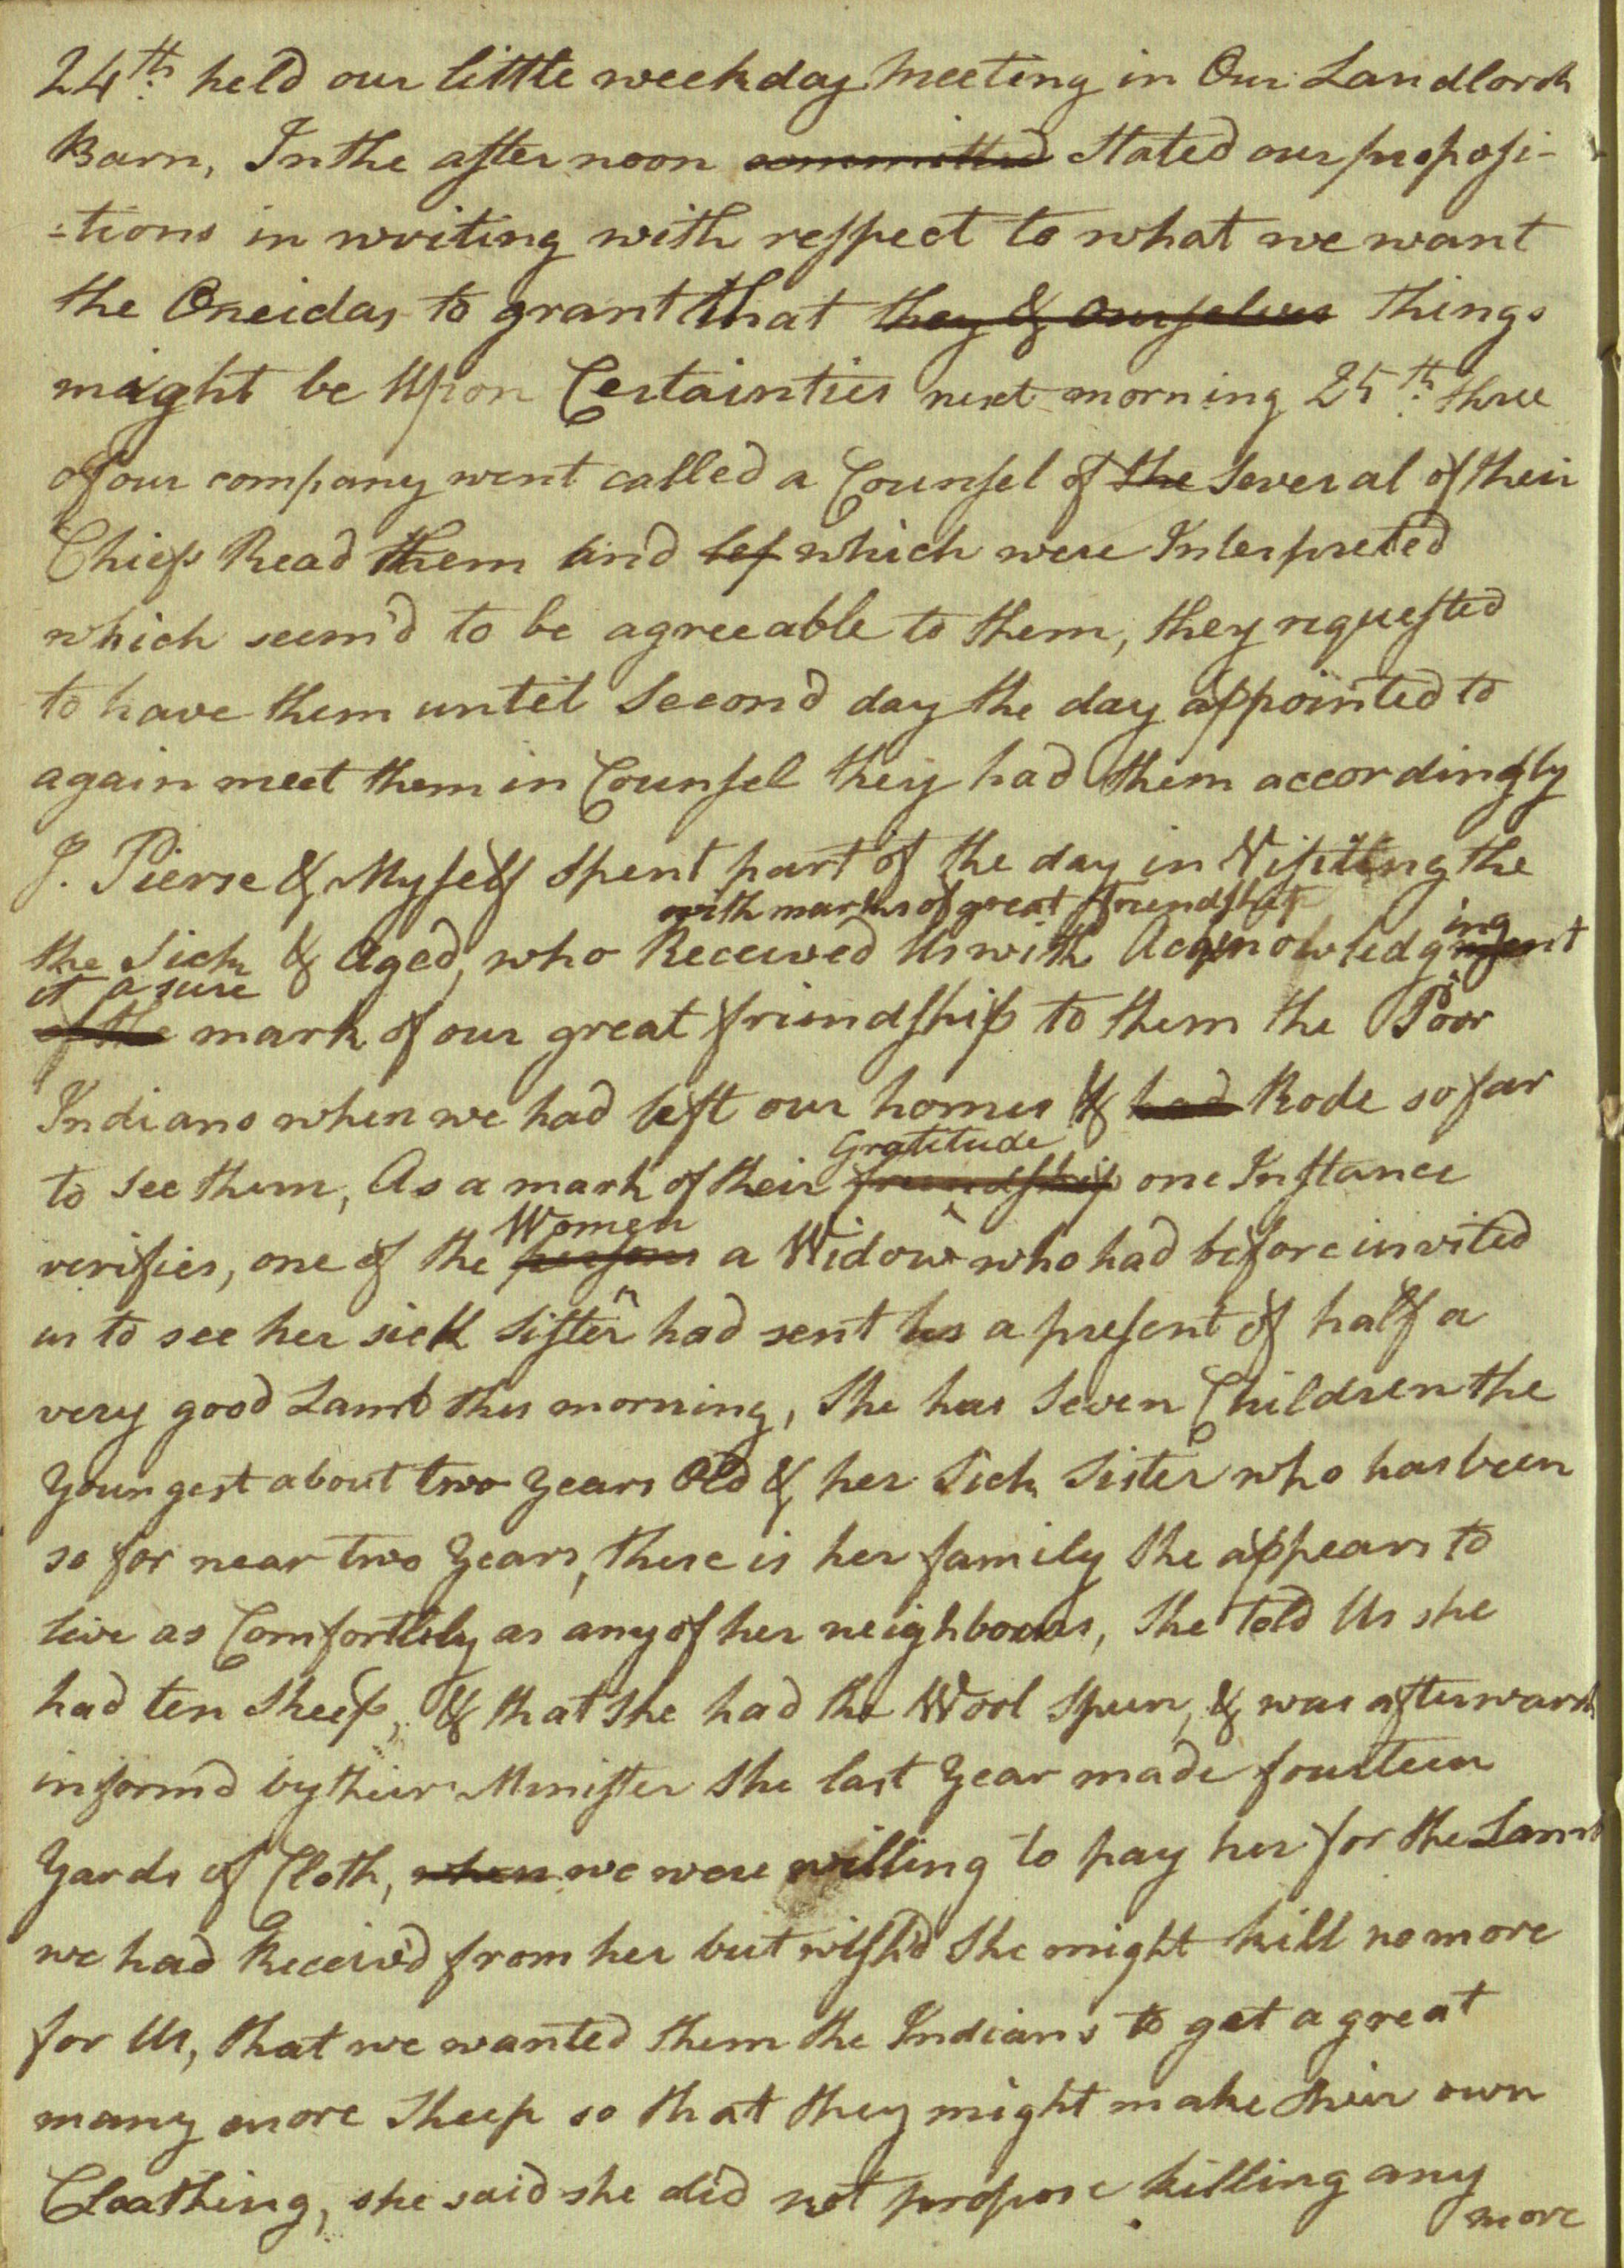 24th. held our little weekday Meeting in Our Landlords
Barn, In the after noon committed Stated our proposi-
-tions in writing with respect to what we want
the Oneidas to grant that they & ourselves things
might be Upon Certainties next morning 25th. three
of our company went called a Counsel of the several of their
Chiefs Read them and lef which were Interpreted
which seem'd to be agreeable to them, they requested
to have them until Second day the day appointed to
again meet them in Counsel they had them accordingly
J. Pierse & Myself spent part of the day in Visiting the
with marks of great friendship
the Sick & Aged, who Received Us with Acknowledgment
ing
it a sure
of the mark of our great friendship to them the Poor
Indians when we had left our homes & had Rode so far
Gratitude
to see them, As a mark of their friendship one Instance
Women
verifies, one of the persons a Widow who had before invited
us to see her sick Sister had sent us a present of half a
very good Lamb this morning, She has Seven Children the
Youngest about two Years Old & her Sick Sister who has been
so for near two Years, these is her family She appears to
live as Comfortbly as any of her neighbours, She told Us she
had ten Sheep, & that She had the Wool Spun, & was afterwards
inform'd by their Minister She last Year made fourteen
Yards of Cloth, when we were willing to pay her for the Lamb
we had Receiv'd from her but wish'd She might kill no more
for Us, that we wanted them the Indians to get a great
many more Sheep so that they might make their own
Cloathing, she said she did not propose killing any
more